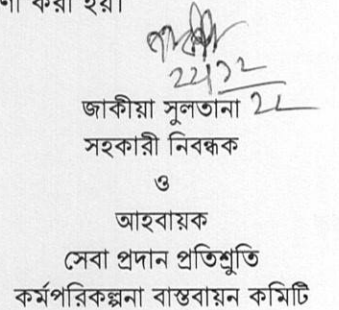 করা হয়।
22/12
জাকীয়া সুলতানা 22
সহকারী নিবন্ধক
ও
আহবায়ক
সেবা প্রদান প্রতিশ্রুতি
কর্মপরিকল্পনা বাস্তবায়ন কমিটি